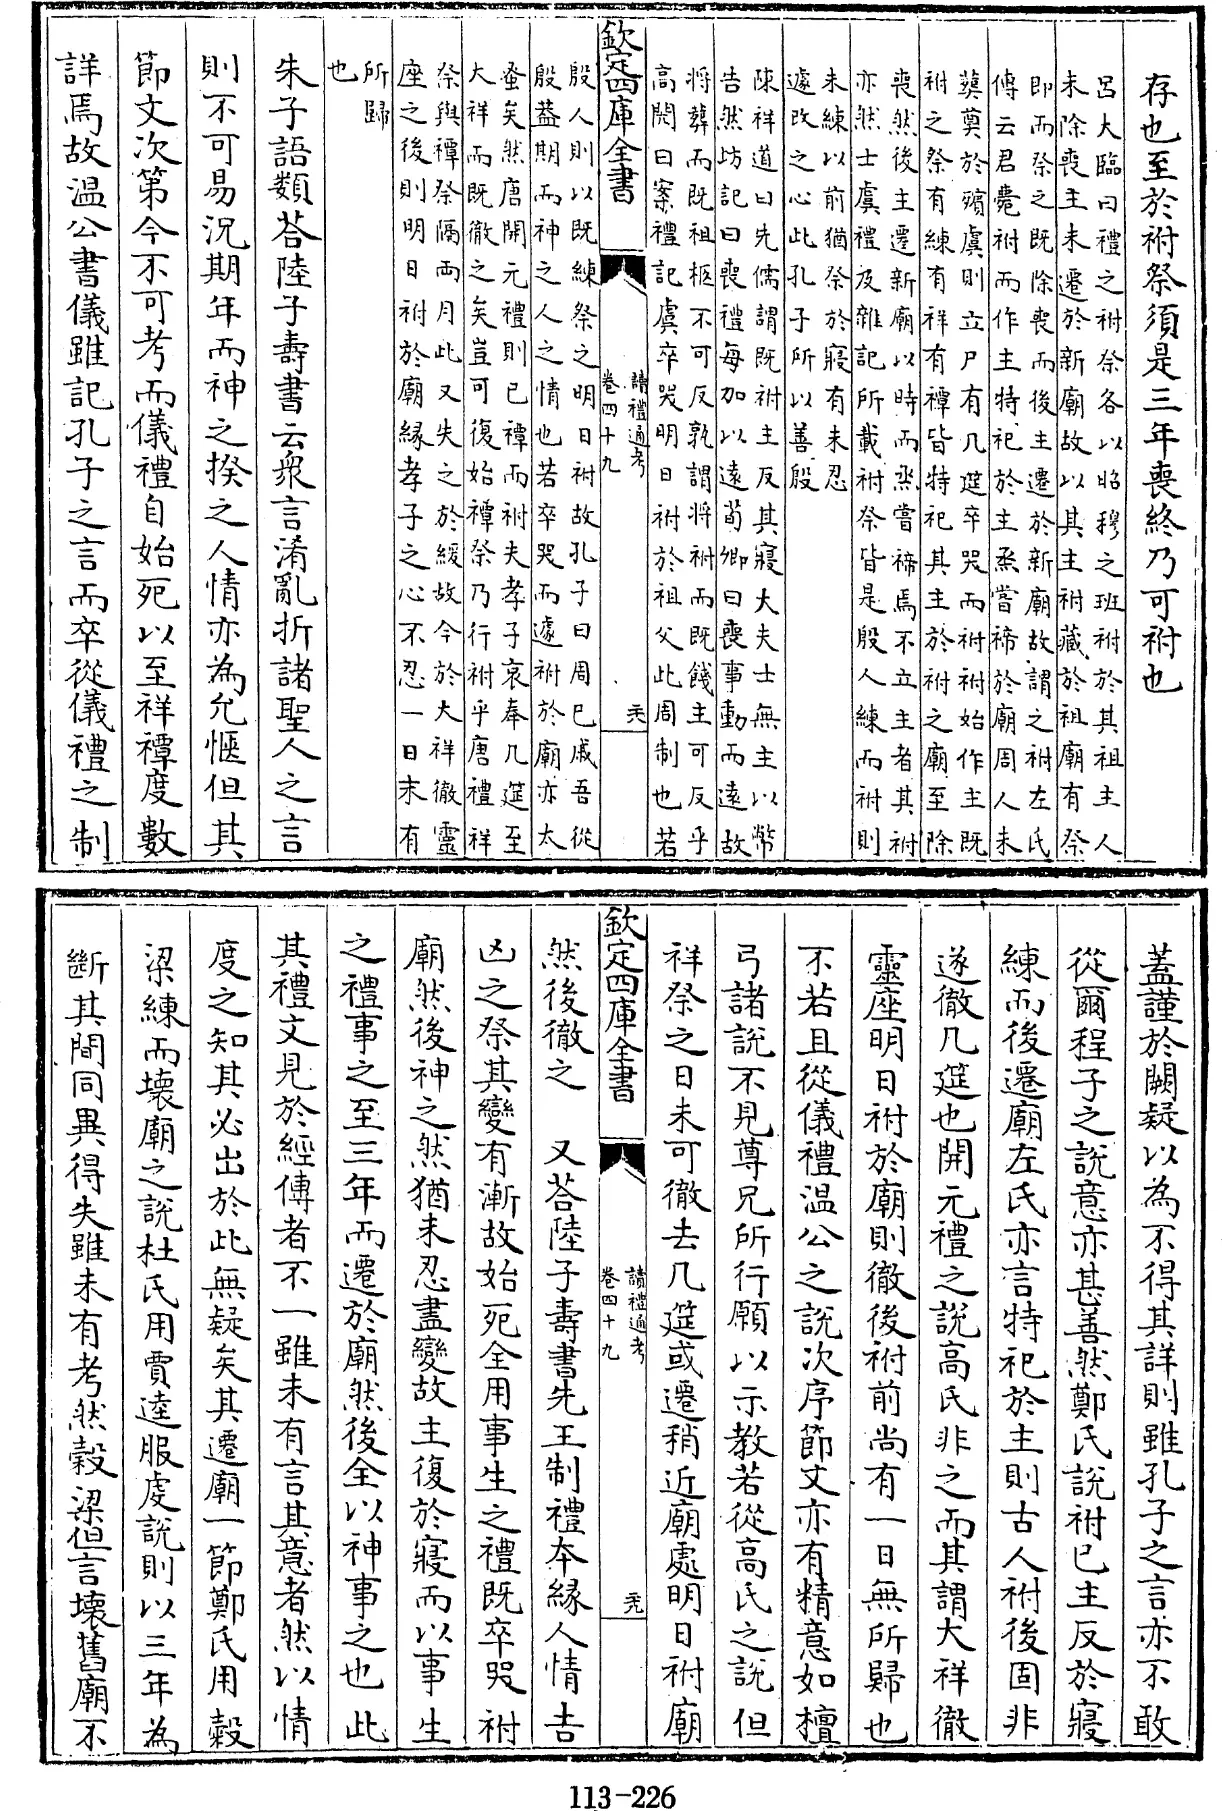 存也至於祔祭須是三年喪終乃可祔也
呂大臨曰禮之祔祭各以昭穆之班祔於其祖主人
未除喪主未遷於新廟故以其主祔藏於祖廟有祭
即而祭之既除喪而後主遷於新廟故謂之祔左氏
傳云君薨祔而作主特祀於主烝嘗禘於廟周人未
葬奠於殯虞則立尸有几筵卒哭而祔祔始作主既
祔之祭有練有祥有禫皆特祀其主於祔之廟至除
喪然後主遷新廟以時而烝嘗禘焉不立主者其祔
亦然士虞禮及雜記所載祔祭皆是殷人練而祔則
未練以前猶祭於寢有未忍
遽改之心此孔子所以善殷
陳祥道曰先儒謂既祔主反其寢大夫士無主以幣
告然坊記曰喪禮每加以遠荀卿曰喪事動而遠故
將葬而既祖柩不可反孰謂將祔而既餞主可反乎
高閌曰案禮記虞卒哭明日祔於祖父此周制也若
欽定四庫全書
讀禮通考
卷四十九
兲
殷人則以既練祭之明日祔故孔子曰周已戚吾從
殷蓋期而神之人之情也若卒哭而遽祔於廟亦太
蚤矣然唐開元禮則已禫而祔夫孝子哀奉几筵至
大祥而既徹之矣豈可復始禫祭乃行祔乎唐禮祥
祭與禫祭隔兩月此又失之於緩故今於大祥徹靈
座之後則明日祔於廟緣孝子之心不忍一日未有
所歸
也
朱子語類荅陸子壽書云衆言淆亂折諸聖人之言
則不可易況期年而神之揆之人情亦為允愜但其
節文次第今不可考而儀禮自始死以至祥禫度數
詳焉故温公書儀雖記孔子之言而卒從儀禮之制
蓋謹於闕疑以為不得其詳則雖孔子之言亦不敢
從爾程子之說意亦甚善然鄭氏說祔已主反於寢
練而後遷廟左氏亦言特祀於主則古人祔後固非
遂徹几筵也開元禮之說高氏非之而其謂大祥徹
靈座明日祔於廟則徹後祔前尚有一日無所歸也
不若且從儀禮温公之說次序節文亦有精意如檀
弓諸說不見尊兄所行願以示教若從高氏之說但
祥祭之日未可徹去几筵或遷稍近廟處明日祔廟
欽定四庫全書
讀禮通考
卷四十九
兲
然後徹之　又荅陸子壽書先王制禮本緣人情吉
凶之祭其變有漸故始死全用事生之禮既卒哭祔
廟然後神之然猶未忍盡變故主復於寢而以事生
之禮事之至三年而遷於廟然後全以神事之也此
其禮文見於經傳者不一雖未有言其意者然以情
度之知其必出於此無疑矣其遷廟一節鄭氏用穀
梁練而壞廟之說杜氏用賈逵服虔說則以三年為
斷其間同異得失雖未有考然穀梁但言壞舊廟不
113-226